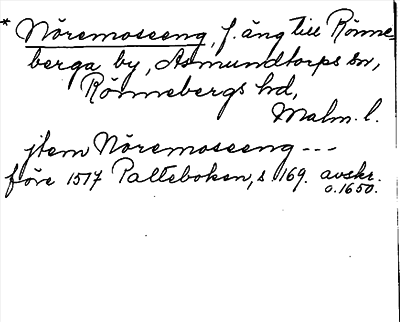 * Nöremoseeng, f. äng till Rönne-
berga by, Asmundtorps sn,
Rönnebergs hd,
Malm. l.
jtem Nöremoseeng ---
före 1517 Palteboken, s 169. avskr.
o. 1650.